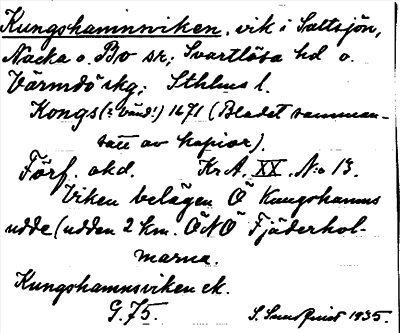 Kungshamnsviken, vik i Saltsjön,
Nacka o. Boo sr; Svartlösa hd o.
Värmdö skg; Sthlms l.
Kongs(=      ) 1671 (Bladet samman-
satt av kopior).
Förf. okd. Kr.A. XX. N:o 13.
Viken belägen Ö Kungshamns
udde (udden 2 km. ÖNÖ Fjäderhol-
marna.
Kungshamnsviken ek.
G. 75. S. Sundquist 1935.